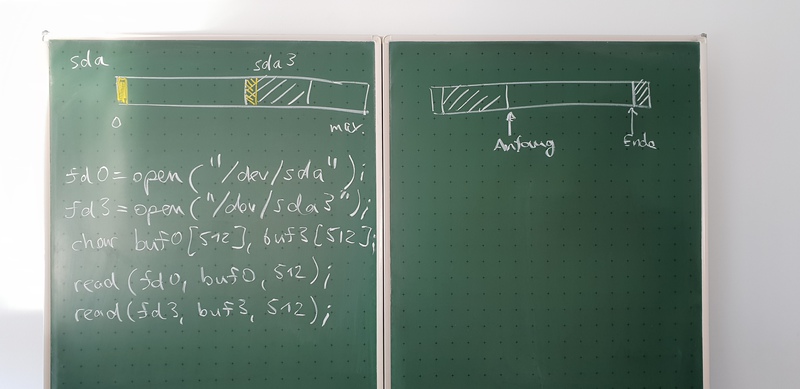 sda
sda3
0
max.
fd0 = open("/dev/sda");
fd3 = open("/dev/sda3");
char buf0[512], buf3[512];
read(fd0, buf0, 512);
read(fd3, buf3, 512);
Anfang
Ende